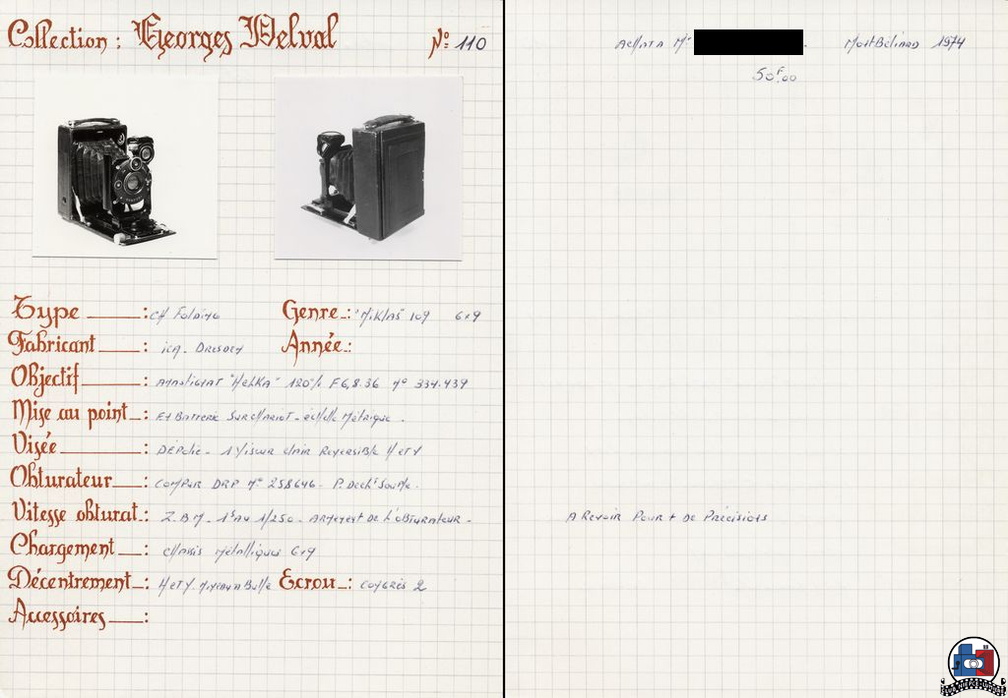 Collection : Georges Delval Nº 110
Type : CH Folding Genre : "Niklas" 109 6x9
Fabricant : ica. Dresden Année :
Objectif : Anastigmat "Hekla" 120% F6,8.36 nº 334.439
Mise au point : Et Batterie Sur chariot - échelle Métrique.
Visée : Dépolie - 1 Viseur clair Reversible H et V
Obturateur : Compur DRP nº 258646 - P. Decht Souple.
Vitesse obturat : Z.B.M. 1s au 1/250 - Armement de l'obturateur -
Chargement : châssis métalliques 6x9
Décentrement : H et V. Niveau à Bulle Ecrou : Congrès 2
Accessoires :
Achat à Mr . Montbéliard 1974
50F,00
A Revoir Pour + De Précisions